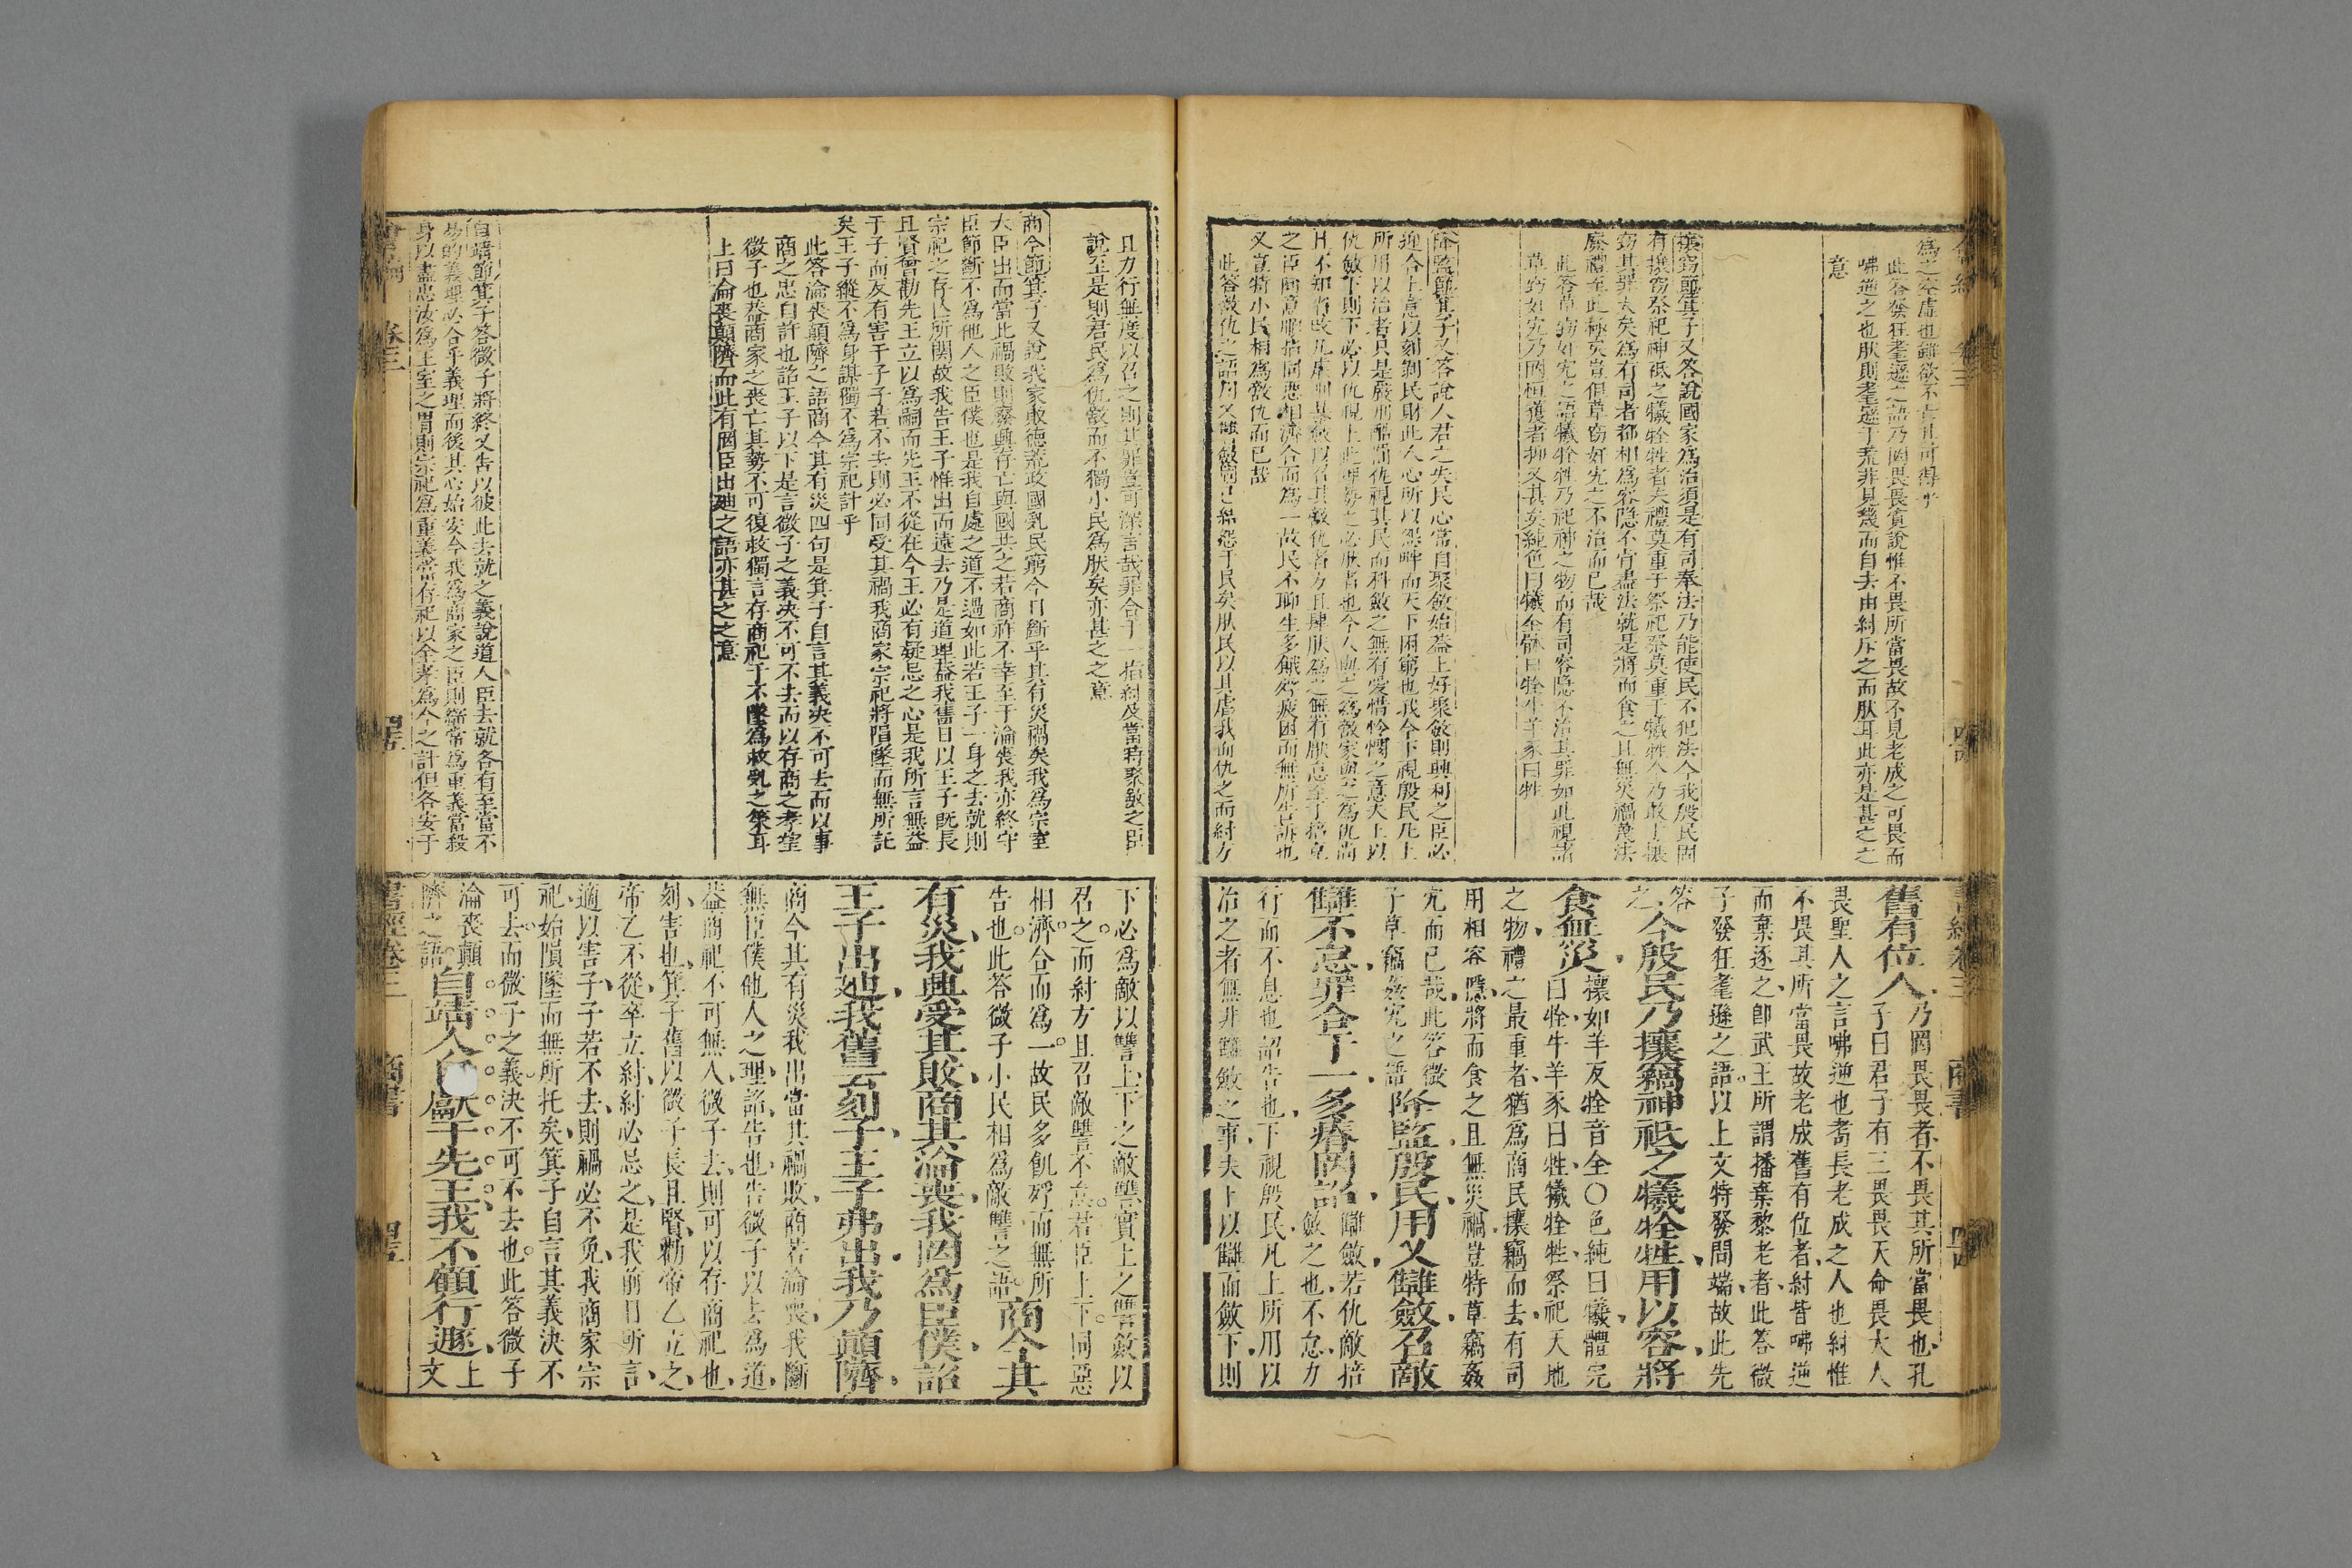 為之奈虐也雖欲不亡其可得乎
此答發狂耄遜之語乃罔畏畏實說惟不畏所當畏故不見老成之可畏而
咈逆之也肰則耄遜于荒非見幾而自去由紂斥之而肰耳此亦是甚之之
意
攘竊節箕子又答說國家為治須是有司奉法乃能使民不犯法今我殷民罔
有攘竊祭祀神祗之犧牷牲者夫禮莫重于祭祀祭莫重于犧牲今乃敢于攘
竊其罪大矣為有司者都相為容隱不肯盡法就是將而食之且無災禍蔑法
廢禮至此極矣豈但草竊奸宄之不治而已哉
此答草竊奸宄之語犧牷牲乃祀神之物而有司容隱不治其罪如此視諸
草竊奸宄乃罔恒獲者抑又甚矣純色曰犧全體曰牷牛羊豕曰牲
降監節箕子又答說人君之失民心常自聚斂始蓋上好聚斂則興利之臣必
迎合上意以刻剝民財此人心所以怨畔而天下困窮也我今下視殷民凡上
所用以治者只是嚴刑酷罰仇視其民而科斂之無有愛惜怜憫之意夫上以
仇斂下則下必以仇視上此理勢之必肰者也今人與之為敵家與之為仇尚
且不知省改凡虐刑暴斂以召其敵仇者方且肆肰為之無有厭怠至于掊克
之臣同意聯指同惡相濟合而為一故民不聊生多餓殍疲困而無所告訴也
又豈特小民相為敵仇而已哉
此答敵仇之語用乂讎斂固已結怨于民矣肰民以其虐我而仇之而紂方
舊有位人乃罔畏畏者不畏其所當畏也孔
子曰君子有三畏畏天命畏大人
畏聖人之言咈逆也耇長老成之人也紂惟
不畏其所當畏故老成舊有位者紂皆咈逆
而棄逐之卽武王所謂播棄黎老者此答微
子發狂耄遜之語以上文特發問端故此先
答之今殷民乃攘竊神祗之犧牷牲用以容將
食無災攘如羊反牷音全○色純曰犧體完
曰牷牛羊豕曰牲犧牷牲祭祀天地
之物禮之最重者猶為商民攘竊而去有司
用相容隱將而食之且無災禍豈特草竊姦
宄而已哉此答微
子草竊姦宄之語降監殷民用乂讎斂召敵
讎不怠罪合于一多瘠罔詔讎斂若仇敵掊
斂之也不怠力
行而不息也詔告也下視殷民凡上所用以
治之者無非讎斂之事夫上以讎而斂下則
且力行無度以召之則其罪豈可深言哉罪合于一指紂及當時聚斂之臣
說至是則君民為仇敵而不獨小民為肰矣亦甚之之意
商今節箕子又說我家敗德荒政國乱民窮今日斷乎其有災禍矣我為宗室
大臣出而當此禍敗則廢興存亡與國共之若商祚不幸至于淪喪我亦終守
臣節斷不為他人之臣僕也是我自處之道不過如此若王子一身之去就則
宗祀之存亡所関故我告王子惟出而遠去乃是道理蓋我舊日以王子旣長
且賢曾勸先王立以為嗣而先王不從在今王必有疑忌之心是我所言無益
于子而反有害于子子若不去則必同受其禍我商家宗祀將隕墜而無所託
矣王子縱不為身謀獨不為宗祀計乎
此答淪喪顛隮之語商今其有災四句是箕子自言其義决不可去而以事
商之忠自許也詔王子以下是言微子之義决不可不去而以存商之孝望
微子也蓋商家之喪亡其勢不可復救獨言存商祀于不墜為救乱之策耳
上曰淪喪顛隮而此有罔臣出廸之語亦甚之之意
自靖節箕子答微子將終又告以彼此去就之義說道人臣去就各有至當不
易的義理必合乎義理而後其心始安今我為商家之臣則綱常為重義當殺
身以盡忠汝為王室之胄則宗祀為重義當存祀以全孝為今之計但各安于
下必為敵以讐上下之敵讐實上之讐斂以
召之而紂方且召敵讐不怠君臣上下同惡
相濟合而為一故民多飢殍而無所
告也此答微子小民相為敵讐之語商今其
有災我興受其敗商其淪喪我罔為臣僕詔
王子出廸我舊云刻子王子弗出我乃顛隮
商今其有災我出當其禍敗商若淪喪我斷
無臣僕他人之理詔告也告微子以去為道
蓋商祀不可無人微子去則可以存商祀也
刻害也箕子舊以微子長且賢勸帝乙立之
帝乙不從卒立紂紂必忌之是我前日所言
適以害子子若不去則禍必不免我商家宗
祀始隕墜而無所托矣箕子自言其義決不
可去而微子之義決不可不去也此答微子
淪喪顛
隮之語自靖人自獻于先王我不顧行遯上
文
書經卷三 商書